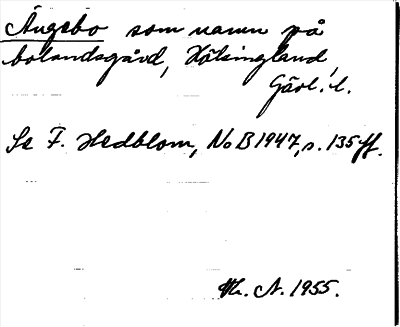 Ängebo som namn på
bolandsgård, Hälsingland,
Gävl. l.
Se F. Hedblom, NoB 1947, s. 135 ff.
Th. A. 1955.